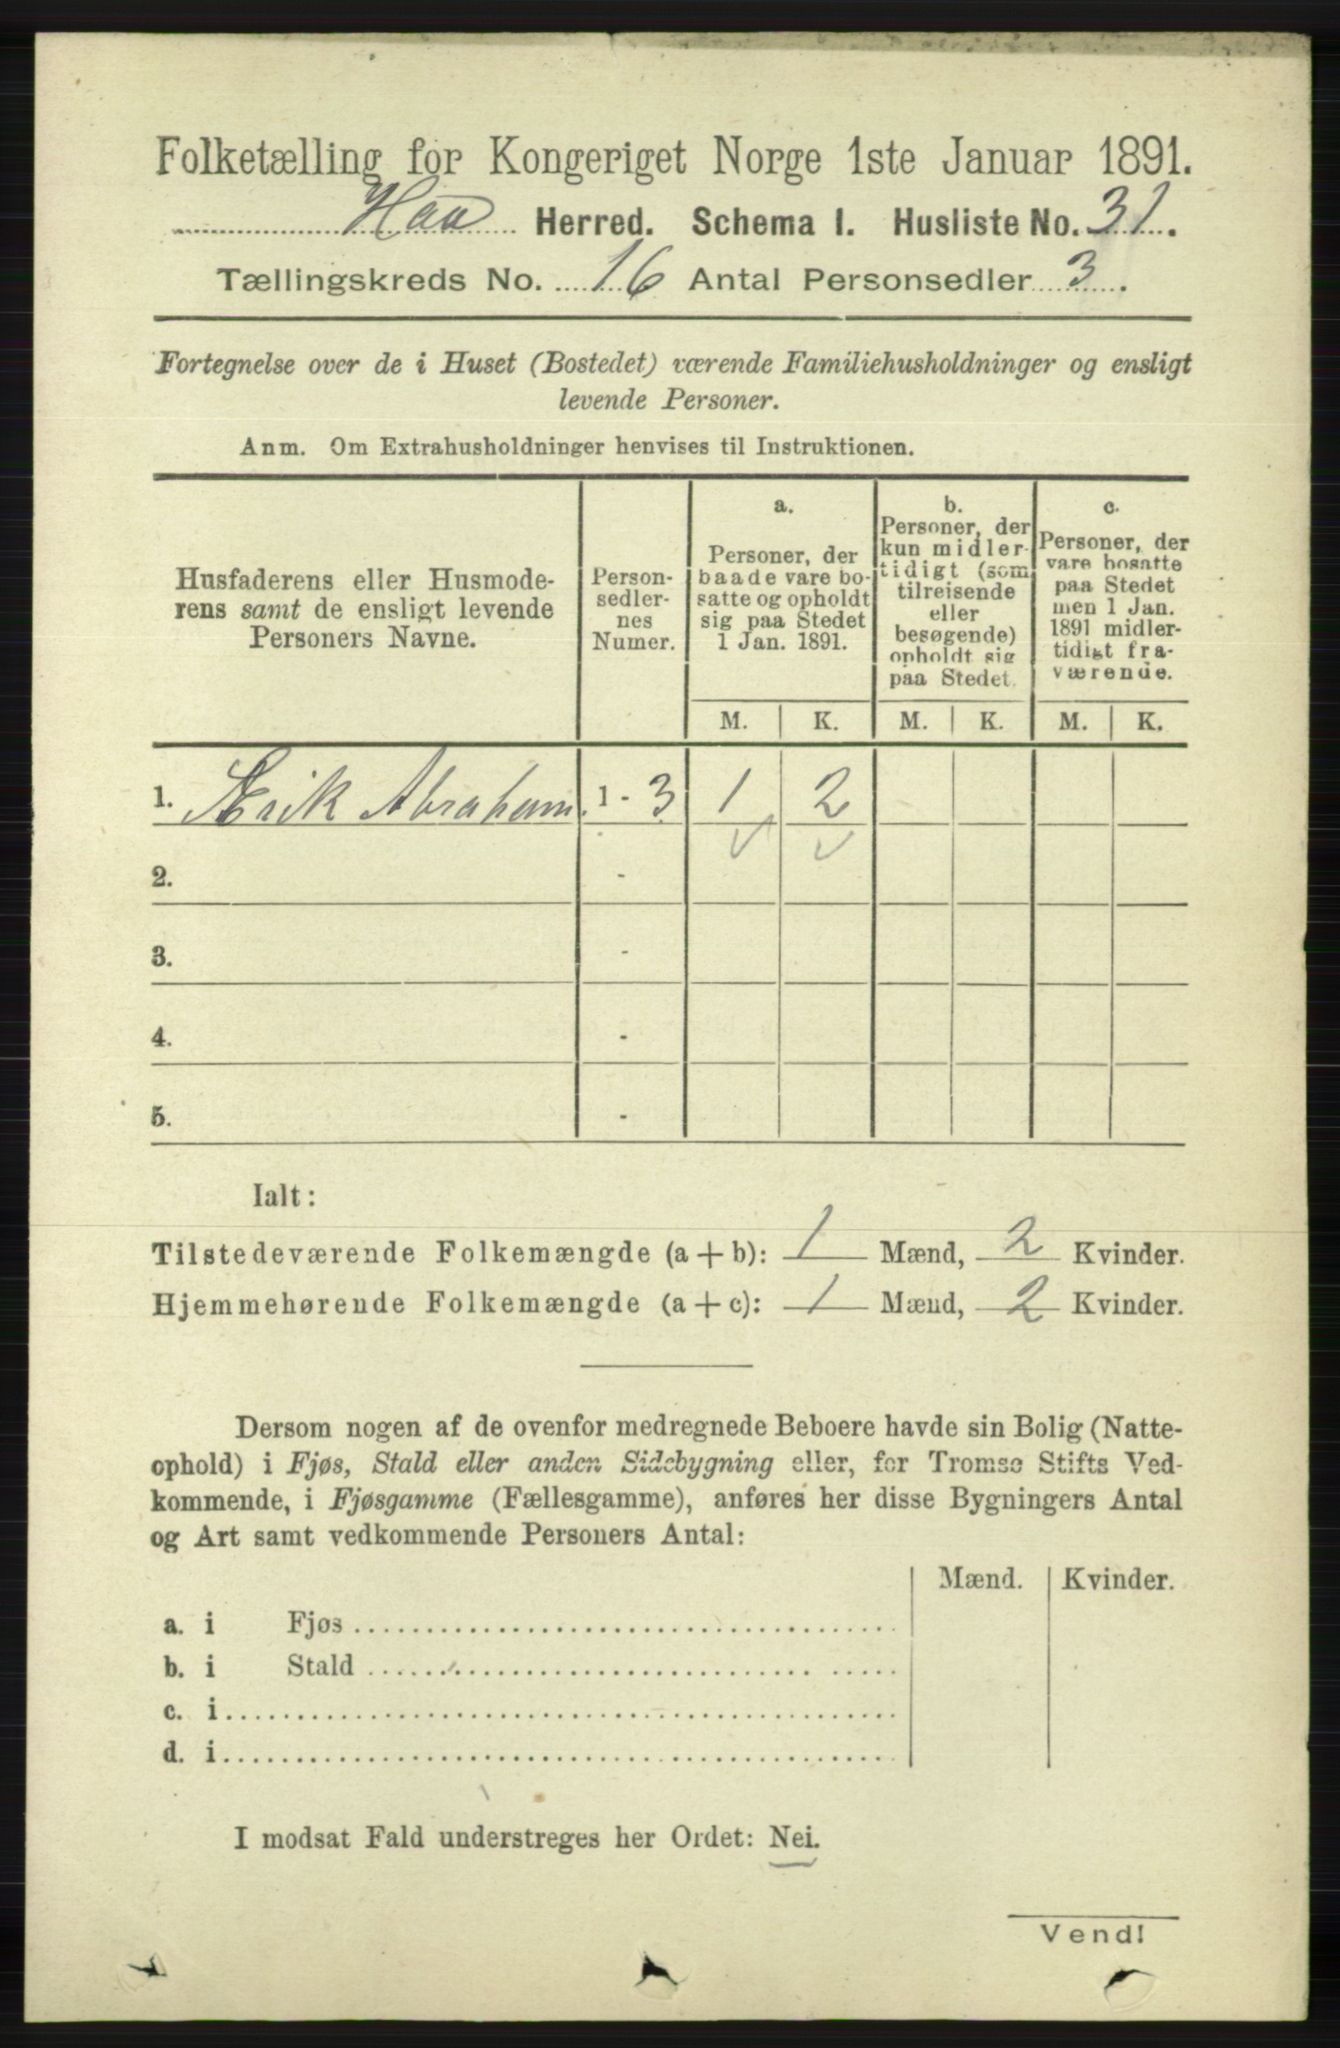 Folketælling for Kongeriget Norge 1ste Januar 1891.
Haa Herred. Schema I. Husliste No. 31.
Tællingskreds No. 16 Antal Personsedler 3.
Fortegnelse over de i Huset (Bostedet) værende Familiehusholdninger og ensligt
levende Personer.
Anm. Om Extrahusholdninger henvises til Instruktionen.
Husfaderens eller Husmode-
rens samt de ensligt levende
Personers Navne.
Person-
sedler-
nes
Numer.
a.
Personer, der
baade vare bo-
satte og opholdt
sig paa Stedet
1 Jan. 1891.
b.
Personer, der
kun midler-
tidigt (som
tilreisende
eller
besøgende)
opholdt sig
paa Stedet.
c.
Personer, der
vare bosatte
paa Stedet
men 1 Jan.
1891 midler-
tidigt fra-
værende.
M. K. M. K. M. K.
1. Erik Abraham. 1 - 3 1 2
2. -
3. -
4. -
5. -
Ialt:
Tilstedeværende Folkemængde (a + b): 1 Mænd, 2 Kvinder.
Hjemmehørende Folkemængde (a + c): 1 Mænd, 2 Kvinder.
Dersom nogen af de ovenfor medregnede Beboere havde sin Bolig (Natte-
ophold) i Fjøs, Stald eller anden Sidebygning eller, for Tromsø Stifts Ved-
kommende, i Fjøsgamme (Fællesgamme), anføres her disse Bygningers Antal
og Art samt vedkommende Personers Antal:
Mænd. Kvinder.
a. i Fjøs
b. i Stald
c. i
d. i
I modsat Fald understreges her Ordet: Nei.
Vend!